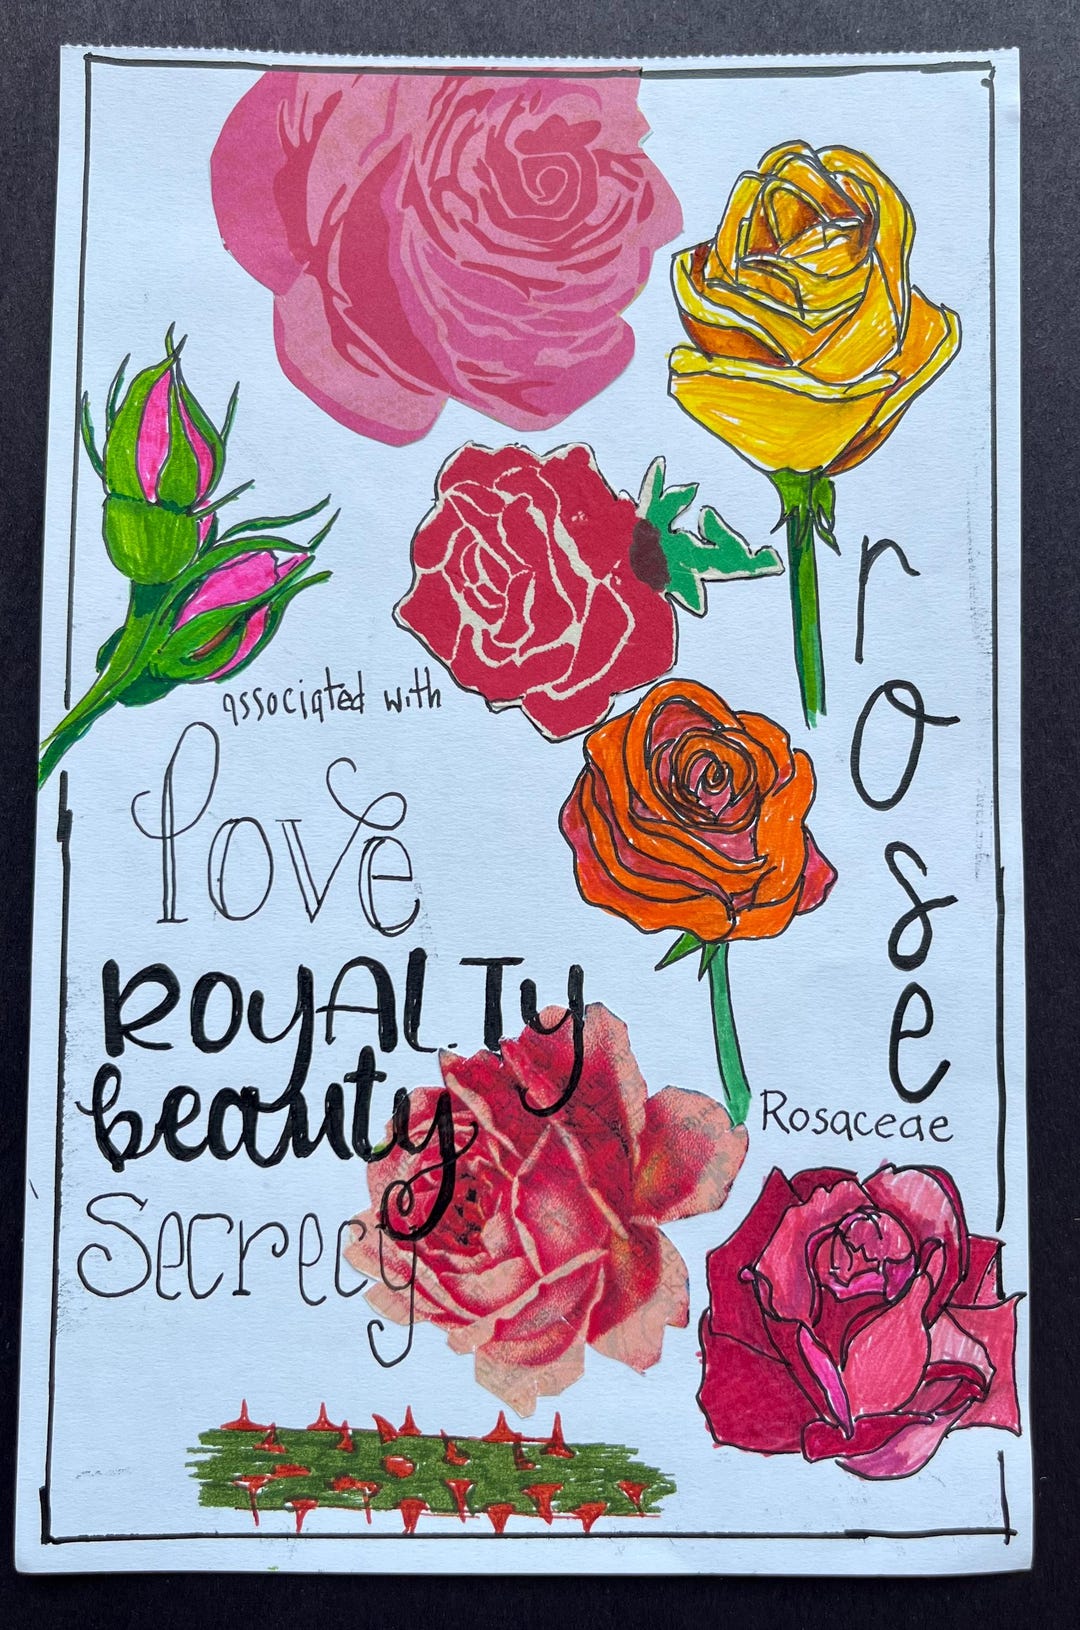 rose
Rosaceae
associated with
love
ROYALTY
beauty
Secrecy